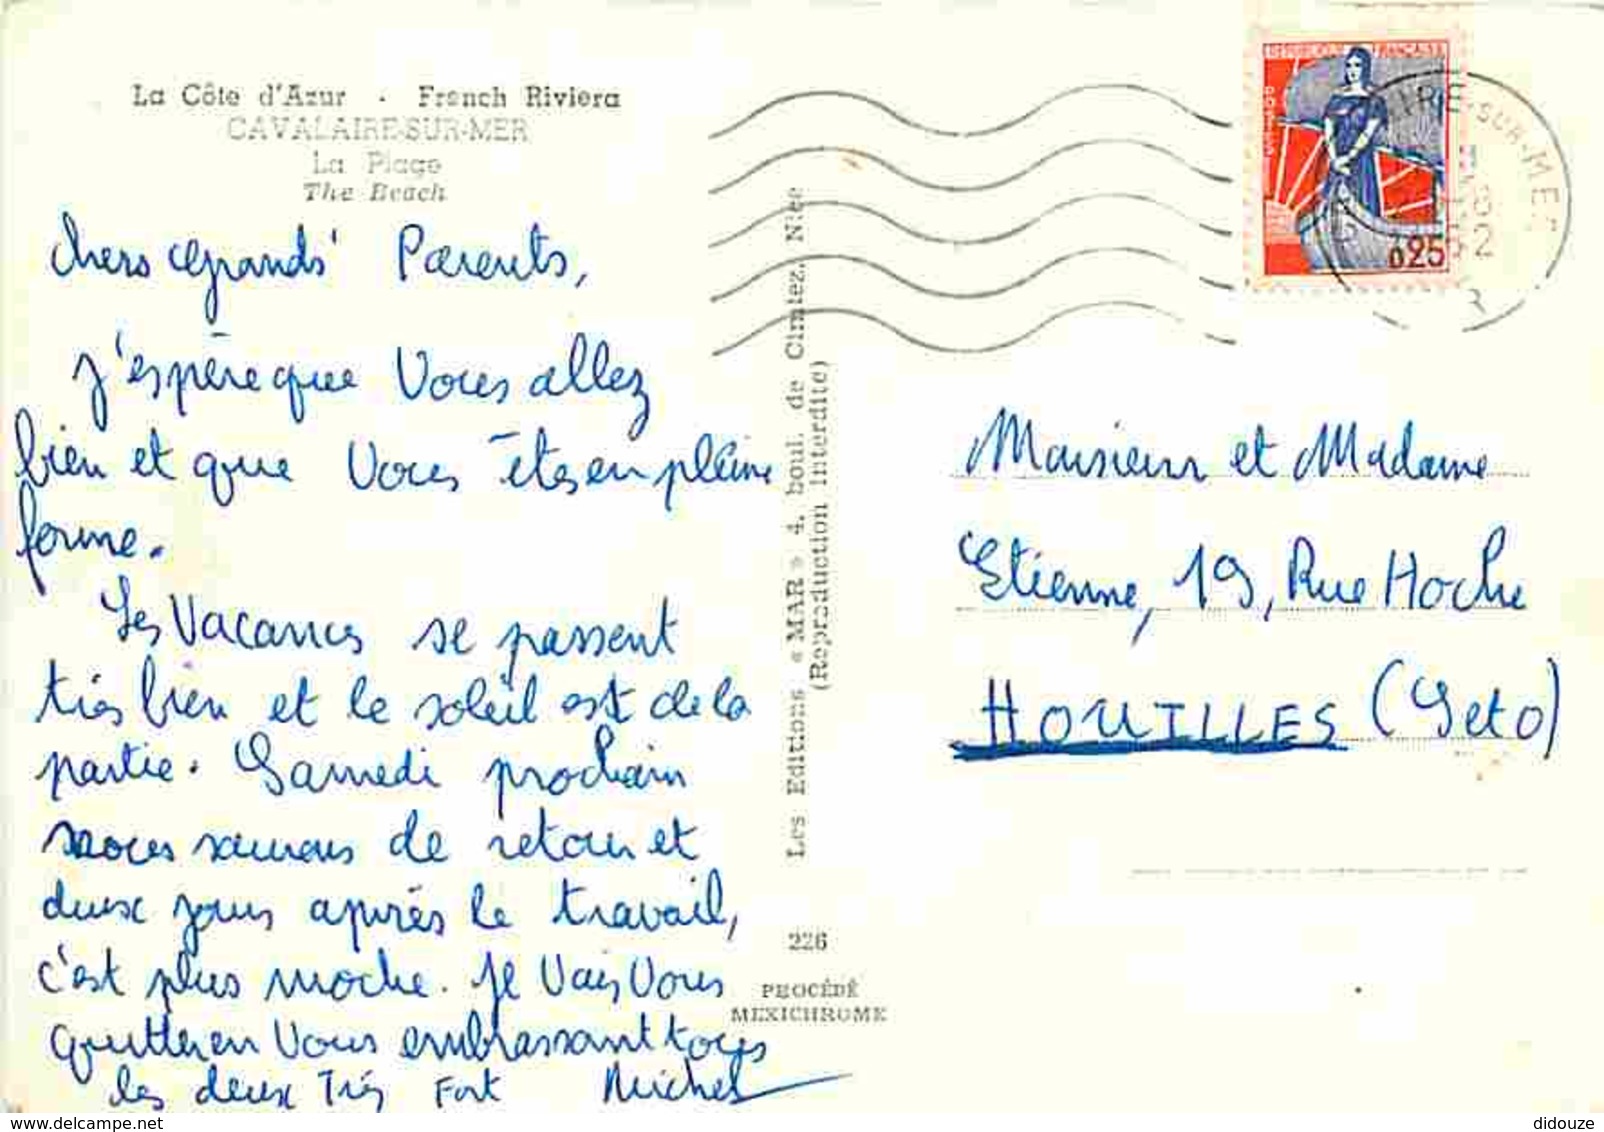 La Côte d'Azur - French Riviera
CAVALAIRE-SUR-MER
La Plage
The Beach
chers Grands Parents,
J'espère que Vous allez
bien et que Vous êtes en pleine
forme.
Les Vacances se passent
très bien et le soleil est de la
partie. Samedi prochain
nous serons de retour et
deux jours après le travail,
c'est plus moche. Je Vais Vous
quitter en Vous embrassant tous
les deux Très Fort Michel
Les Editions « MAR » 4, boul. de Cimiez, Nice
(Reproduction interdite)
226
PROCÉDÉ
MEXICHROME
POSTES
0,25
IRE-SUR-MER
Monsieur et Madame
Etienne, 19, Rue Hoche
HOUILLES (Seto)
didouze